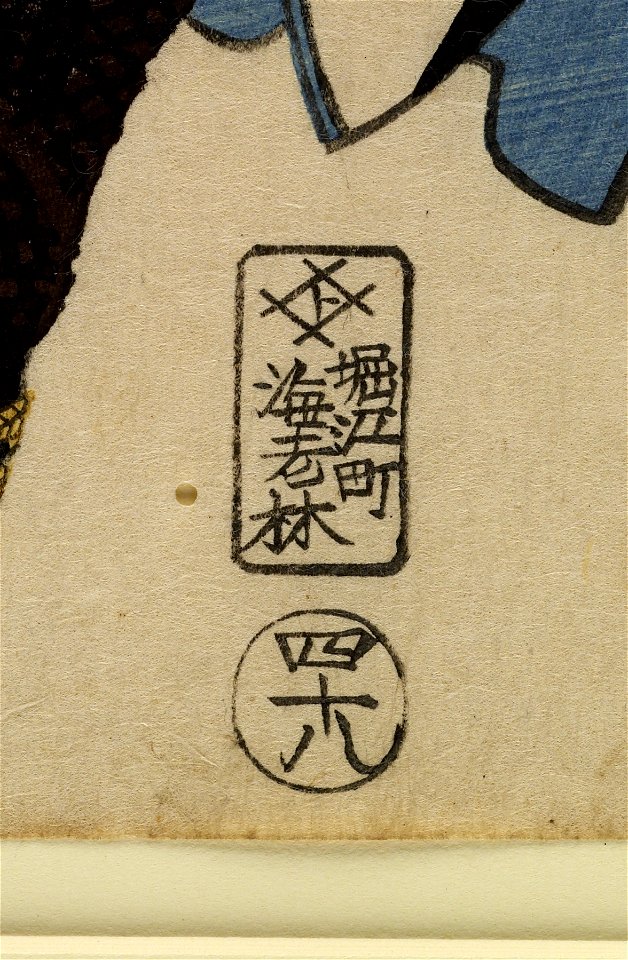 堀江町
海老林
四十八